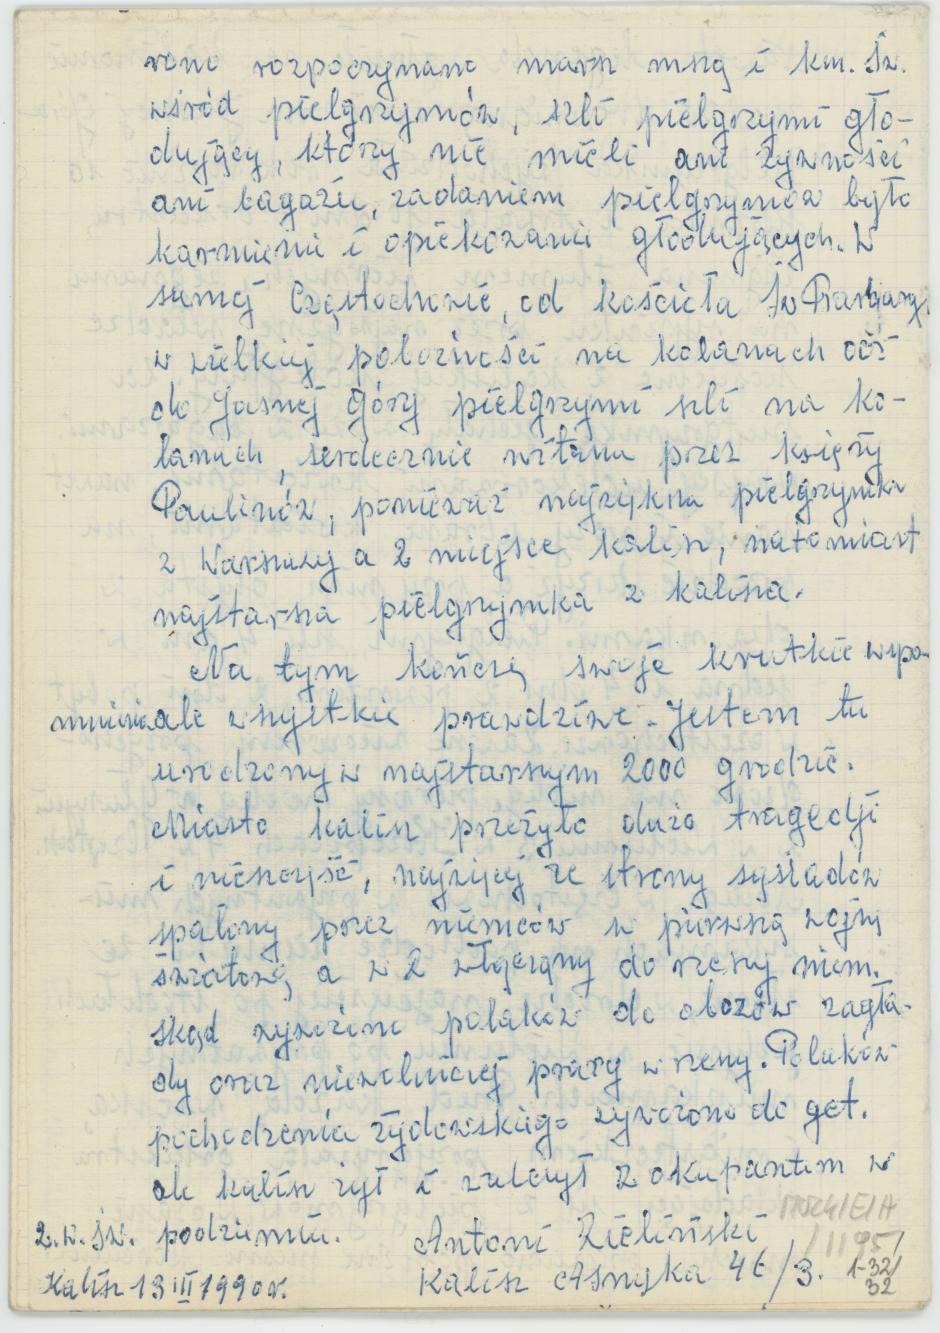 rano rozpoczynano marsz mszą i km. Św.
wśród pielgrzymów, szli pielgrzymi gło-
dujący, którzy nie mieli ani żywności
ani bagażu, zadaniem pielgrzymów było
karmieni i opiekowani głodujących. W
samej Częstochowie, od kościoła Św
w wielkiej pobożności na kolanach aż
do Jasnej Góry pielgrzymi szli na ko-
lanach, serdecznie witana przez księży
Paulinów, ponieważ najwiękna pielgrzymka
z Warszawy a 2 miejsce Kalisz, natomiast
najstarsza pielgrzymka z Kalisza.
Na tym kończę swoje krutkie wspo-
mnienia ale wszystkie prawdziwe. Jestem tu
urodzony w najstarszym 2000 grodzie.
Miasto Kalisz przeżyło dużo tragedji
i nieszczęść, najwięcej ze strony sąsiadów
spalony przez niemców w pierwszą wojnę
światową a w 2 włączony do rzeszy niem.
skąd wywożono polaków do obozów zagła-
dy oraz niewolniczej pracy w rzeszy. Polaków
pochodzenia żydowskiego wywożono do get.
ale Kalisz żył i walczył z okupantem w
2.w.św. podziemiu. Antoni Zieliński
Kalisz 13 III 1990r. Kalisz Asnyka 46/3.
/1195/
1-32/
32